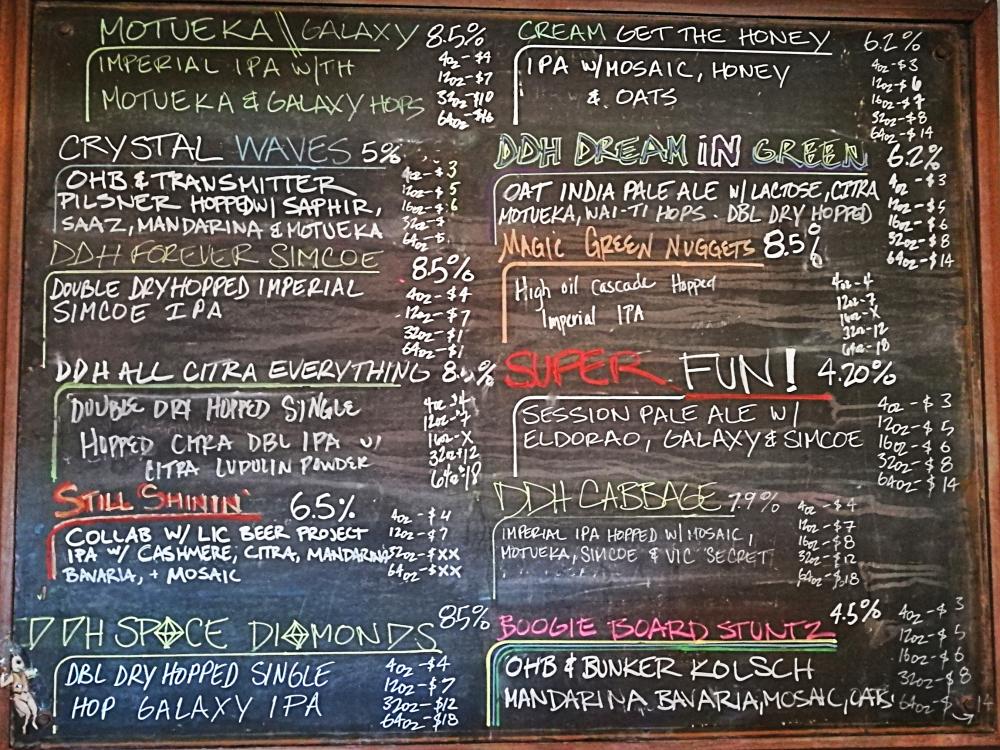 MOTUEKA \\ GALAXY 8.5%
IMPERIAL IPA WITH
MOTUEKA & GALAXY HOPS
4oz-$4
12oz-$7
32oz-$10
64oz-$16
CRYSTAL WAVES 5%
OHB & TRANSMITTER
PILSNER HOPPED W/ SAPHIR,
SAAZ, MANDARINA & MOTUEKA
4oz-$3
12oz-$5
16oz-$6
32oz-$
64oz-$
DDH FOREVER SIMCOE 8.5%
DOUBLE DRYHOPPED IMPERIAL
SIMCOE IPA
4oz-$4
12oz-$7
32oz-$1
64oz-$1
DDH ALL CITRA EVERYTHING
DOUBLE DRY HOPPED SINGLE
HOPPED CITRA DBL IPA W/
CITRA LUPULIN POWDER
4oz-$4
12oz-7
16oz-X
32oz-12
64oz-18
STILL SHININ' 6.5%
COLLAB W/ LIC BEER PROJECT
IPA W/ CASHMERE, CITRA, MANDARINA
BAVARIA, + MOSAIC
4oz-$4
12oz-$7
32oz-$XX
64oz-$XX
DDH SPACE DIAMONDS 85%
DBL DRY HOPPED SINGLE
HOP GALAXY IPA
4oz-$4
12oz-$7
32oz-$12
64oz-$18
CREAM GET THE HONEY 6.2%
IPA W/MOSAIC, HONEY
& OATS
4oz-$3
12oz-$6
16oz-$7
32oz-$8
64oz-$14
DDH DREAM iN GREEN 6.2%
OAT INDIA PALE ALE W/ LACTOSE, CITRA
MOTUEKA, WAI-TI HOPS. DBL DRY HOPPED
4oz-$3
12oz-$5
16oz-$6
32oz-$8
64oz-$14
MAGIC GREEN NUGGETS 8.5%
High oil Cascade Hopped
Imperial IPA
4oz-4
12oz-7
16oz-X
32oz-12
64oz-18
SUPER FUN! 4.20%
SESSION PALE ALE W/
ELDORAO, GALAXY & SIMCOE
4oz-$3
12oz-$5
16oz-$6
32oz-$8
64oz-$14
DDH CABBAGE 7.9%
IMPERIAL IPA HOPPED W/MOSAIC,
MOTUEKA, SIMCOE & VIC SECRET
4oz-$4
12oz-$7
16oz-$8
32oz-$12
64oz-$18
BOOGIE BOARD STUNTZ 4.5%
OHB & BUNKER KOLSCH
MANDARINA BAVARIA, MOSAIC,
4oz-$3
12oz-$5
16oz-$6
32oz-$8
64oz-$14